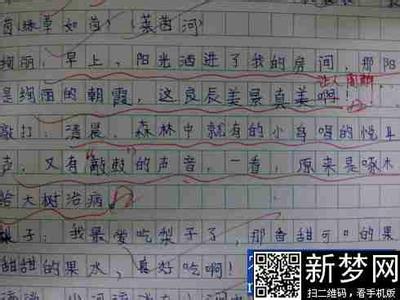 茵绿草如茵)(莱茵河)
绚丽:早上,阳光洒进了我的房间,那阳
让人陶醉
是绚丽的朝霞,这良辰美景真美啊!
敲打:清晨,森林中就有的小鸟唱的悦耳
声,又有"敲鼓"的声音,一看,原来是啄木
给大树治病
梨子:我最爱吃梨子了,那香甜可口的果
甜甜的果水,真好吃啊!
新梦网
扫二维码,看手机版